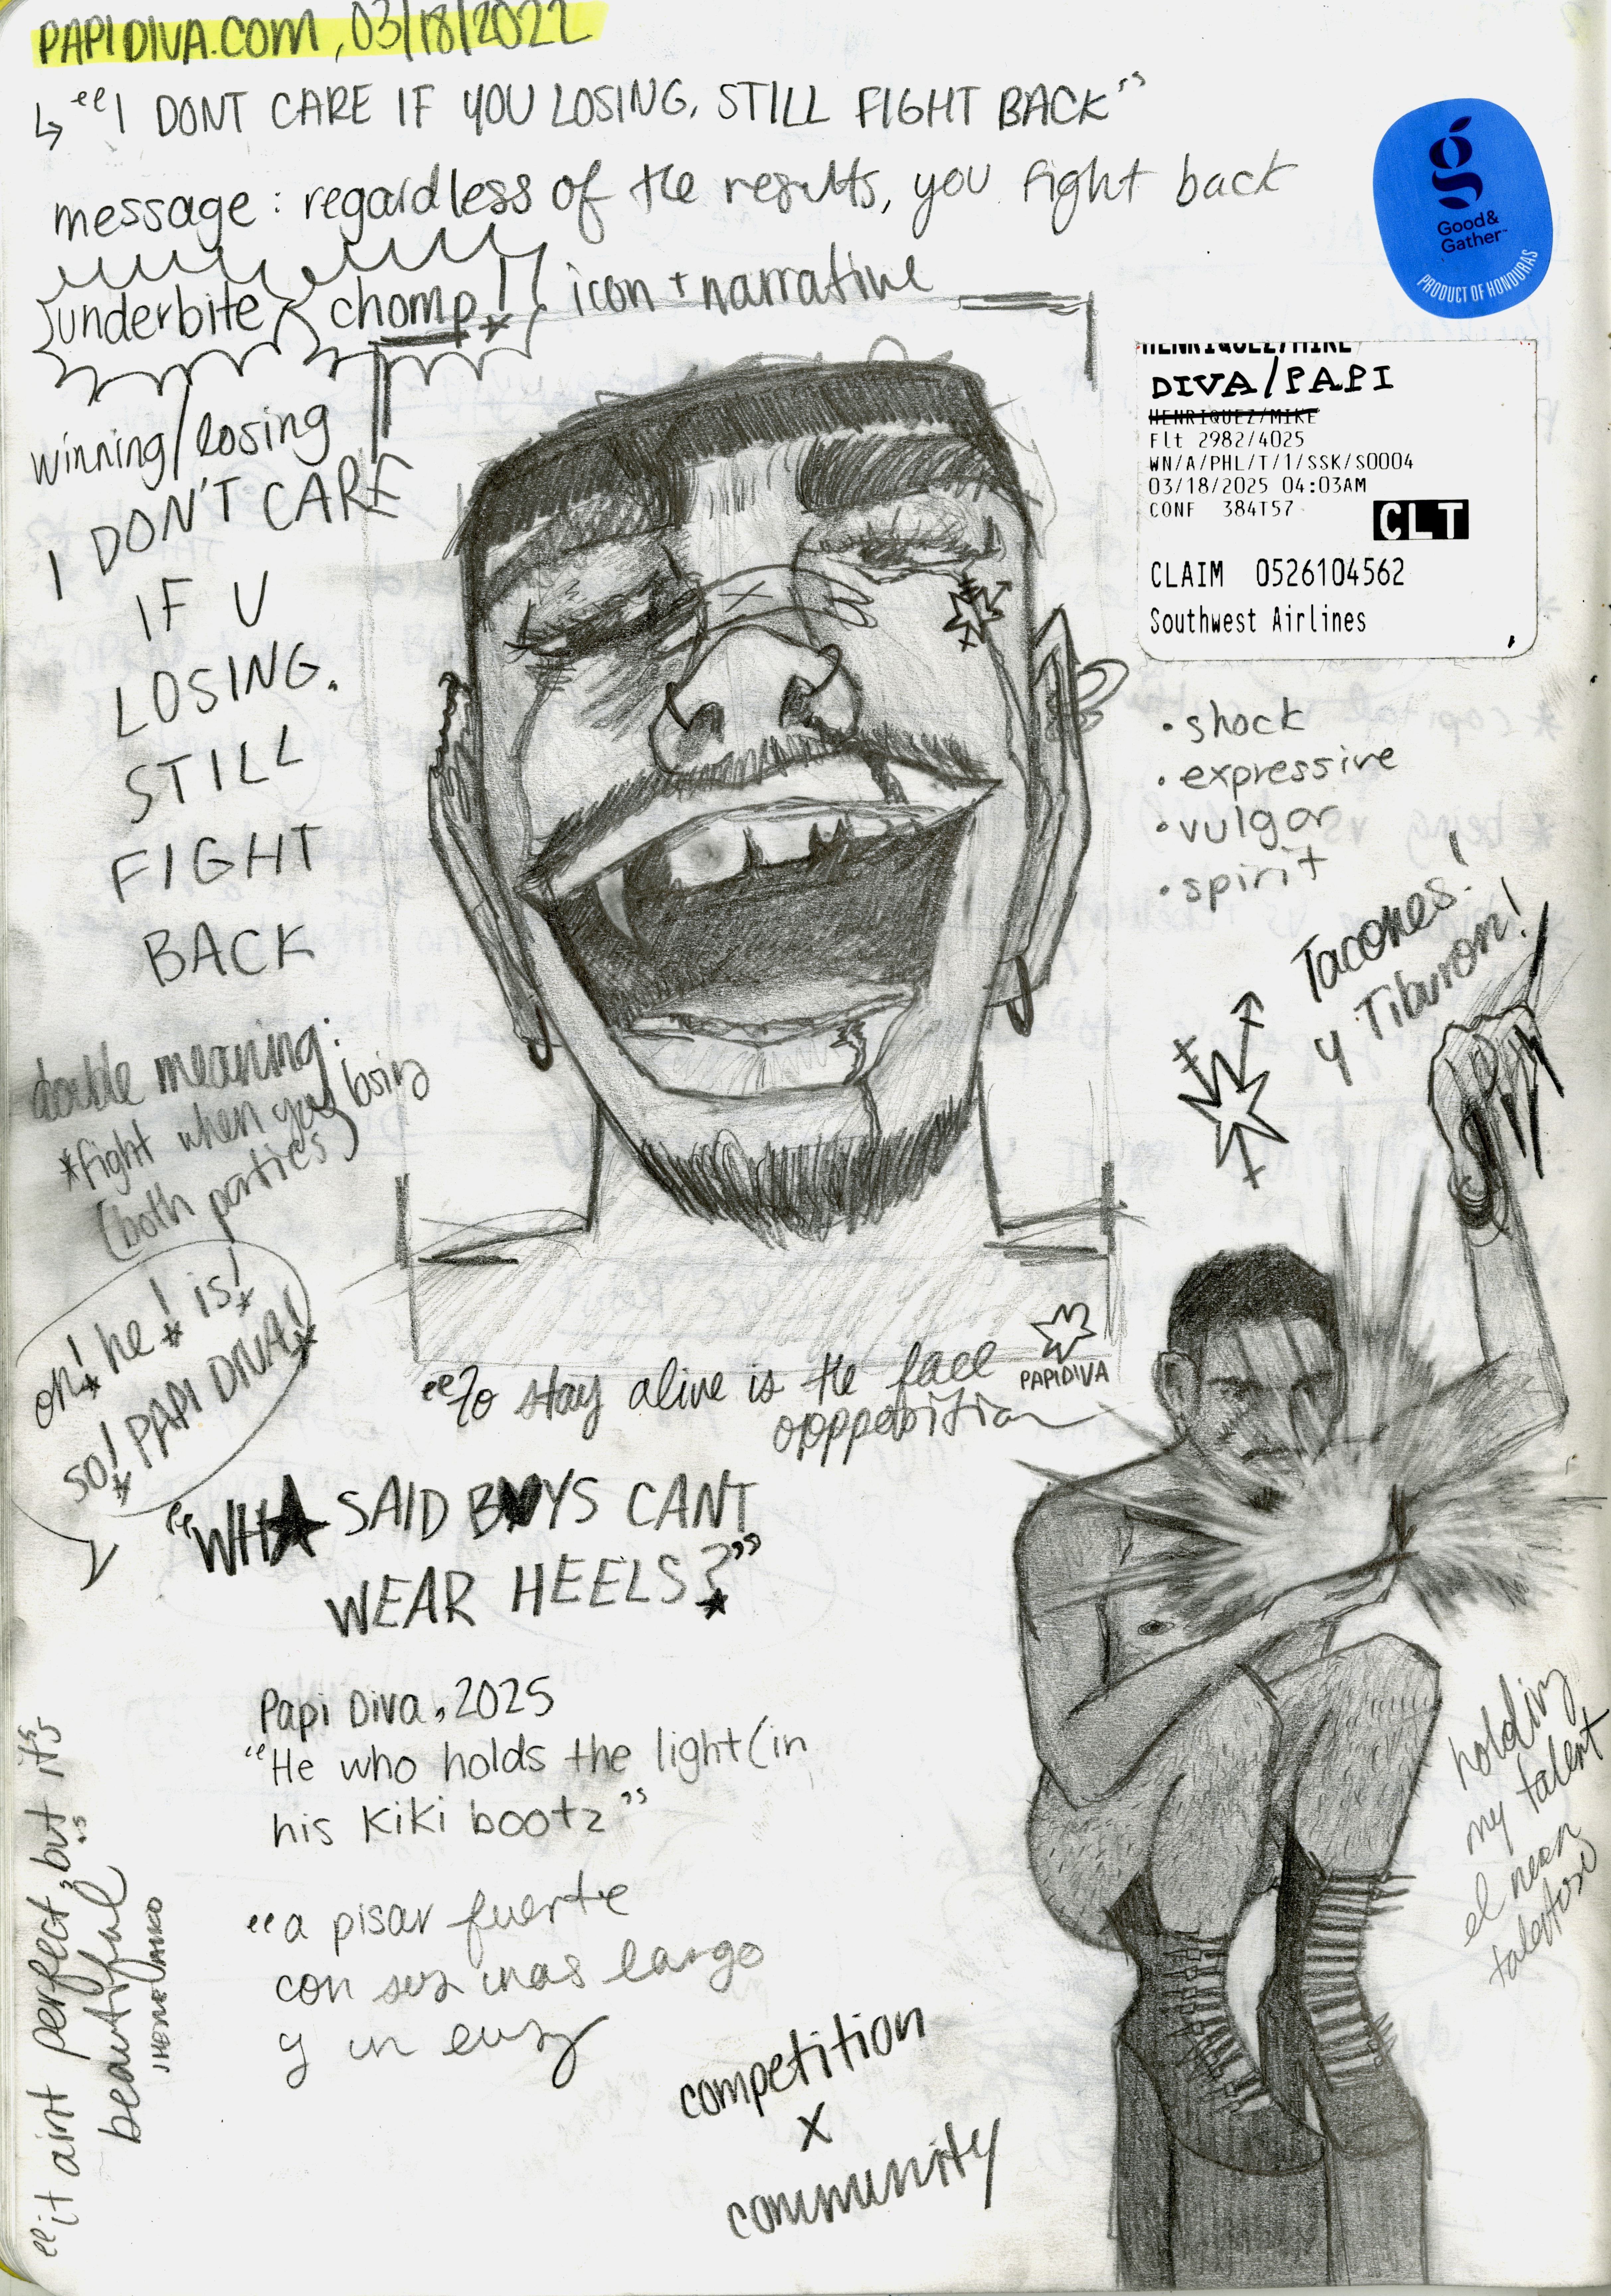 PAPIDIVA.COM, 03/18/2022
↳ "I DONT CARE IF YOU LOSING, STILL FIGHT BACK"
message: regardless of the results, you fight back
underbite chomp! icon + narrative
winning/losing
I DON'T CARE
IF U
LOSING.
STILL
FIGHT
BACK
double meaning:
*fight when you losing
(both parties)
oh! he! is!
so! PAPI DIVA!
Good&
Gather™
PRODUCT OF HONDURAS
HENRIQUEZ/MIKE
DIVA/PAPI
HENRIQUEZ/MIKE
Flt 2982/4025
WN/A/PHL/T/1/SSK/S0004
03/18/2025 04:03AM
CONF 384T57
CLT
CLAIM 0526104562
Southwest Airlines
• shock
• expressive
• vulgar
• spirit
Tacones!
y Tiburon!
PAPIDIVA
"To stay alive is the face
"WH★ SAID B♥YS CANT
WEAR HEELS?"
Papi Diva, 2025
"He who holds the light (in
his kiki bootz"
"a pisar fuerte
con sus unas largo
y un
competition
x
community
holding
my talent
el
"it aint perfect, but it's
beautiful"